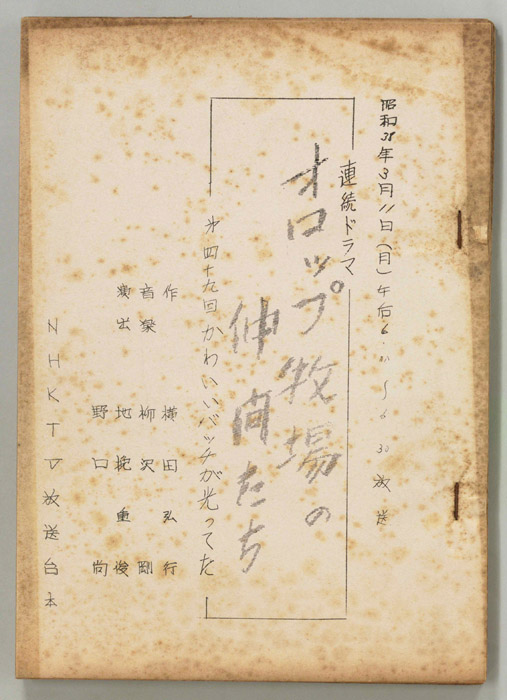 昭和38年3月11日(月)午后6.00〜6.30放送
連続ドラマ
オロップ牧場の
仲間たち
㐧四十九回かわいいバッチが光ってた
作 横田弘行
音楽 柳沢剛
演出 地挽重俊
野口尚
NHKTV放送台本